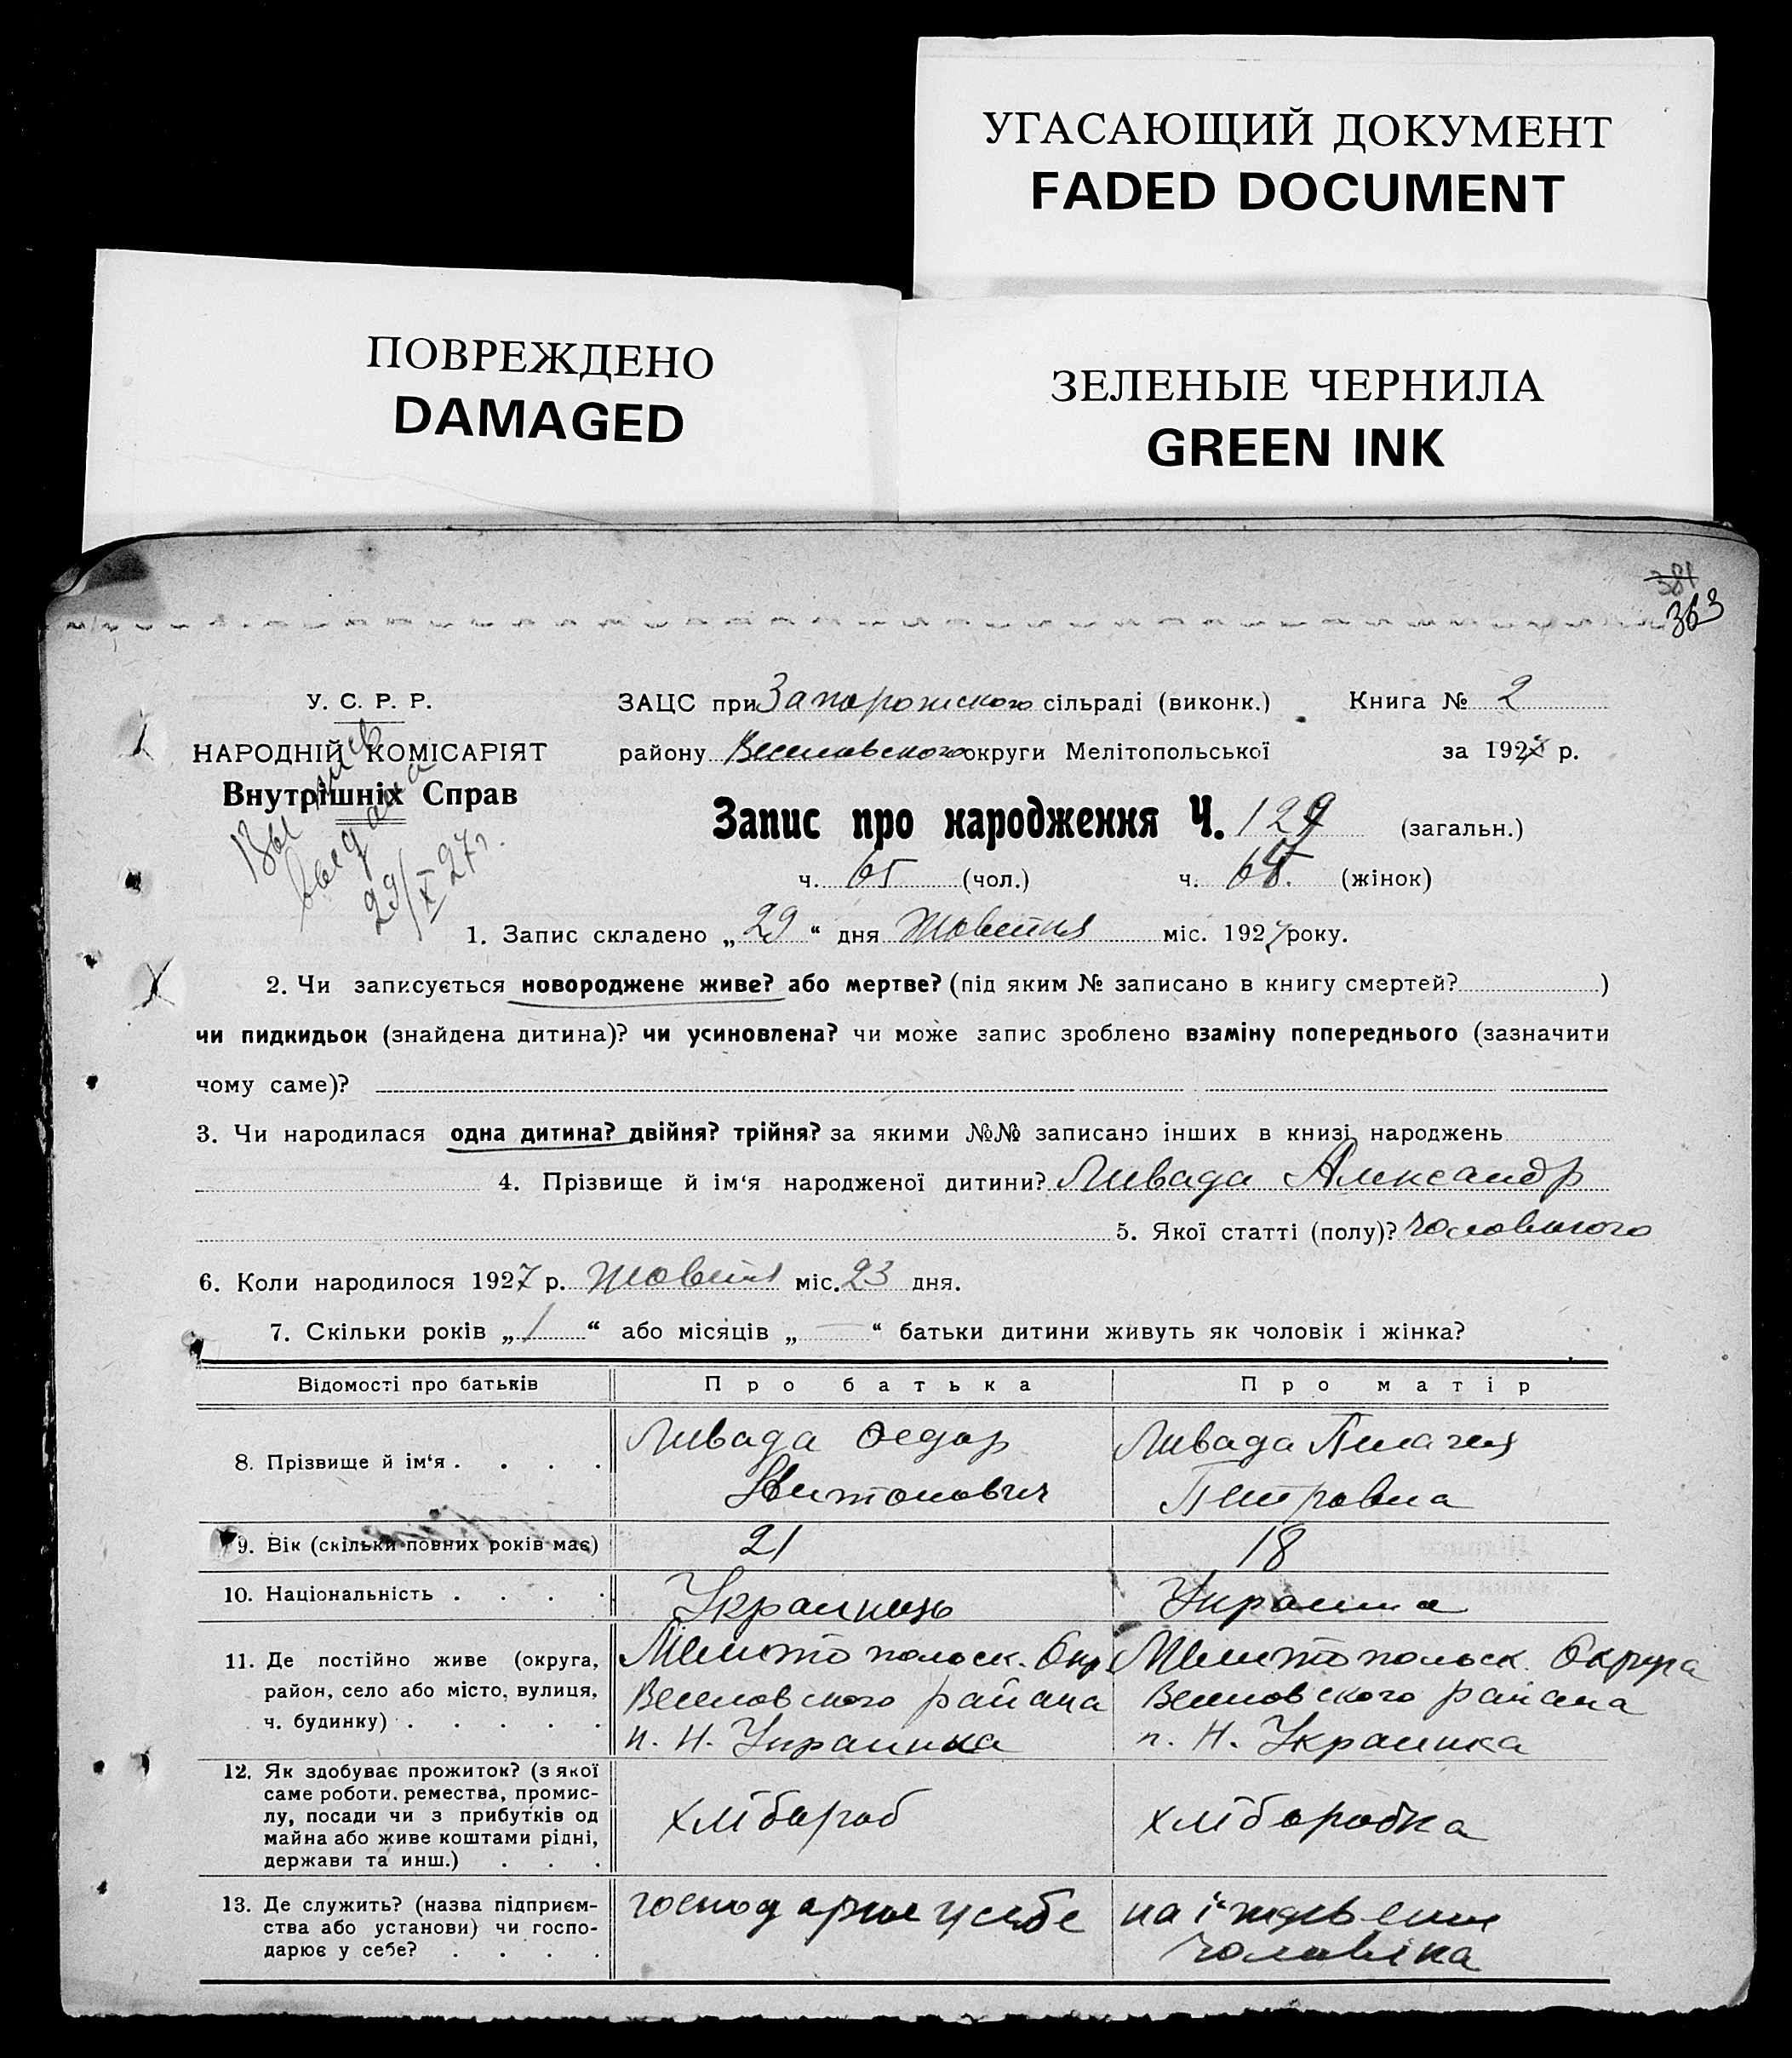 УГАСАЮЩИЙ ДОКУМЕНТ
FADED DOCUMENT
ПОВРЕЖДЕНО
DAMAGED
ЗЕЛЕНЫЕ ЧЕРНИЛА
GREEN INK
381
363
У. С. Р. Р.
НАРОДНІЙ КОМІСАРІЯТ
Внутрішніх Справ
выдана
29/X 27 г.
ЗАЦС при Запорожского сільраді (виконк.) Книга № 2
району Веселовского округи Мелітопольської за 1927 р.
Запис про народження Ч. 129 (загальн.)
ч. 65 (чол.) ч. (жінок)
1. Запис складено „ 29 “ дня Жовтня міс. 1927 року.
2. Чи записується новороджене живе? або мертве? (під яким № записано в книгу смертей? )
чи пидкидьок (знайдена дитина)? чи усиновлена? чи може запис зроблено взаміну попереднього (зазначити
чому саме)?
3. Чи народилася одна дитина? двійня? трійня? за якими №№ записано інших в книзі народжень
4. Прізвище й ім‘я народженої дитини? Ливада Александр
5. Якої статті (полу)? чоловічого
6. Коли народилося 1927 р. Жовтня міс. 23 дня.
7. Скільки років „ 1 “ або місяців „ — “ батьки дитини живуть як чоловік і жінка?
Відомості про батьків Про батька Про матір
8. Прізвище й ім‘я . . . . Ливада Федор Ливада Пилагея
Антонович Петровна
9. Вік (скільки повних років має) 21 18
10. Національність . . . . Украинець Украинка
11. Де постійно живе (округа, Мелитопольск. Окр. Мелитопольск. Округа
район, село або місто, вулиця, Веселовского района Веселовского района
ч. будинку) . . . . . п. Н. Украинка п. Н. Украинка
12. Як здобуває прожиток? (з якої
саме роботи, ремества, промис-
лу, посади чи з прибутків од хлібороб хліборобка
майна або живе коштами рідні,
держави та инш.) . . .
13. Де служить? (назва підприєм- господарює у себе на іждивенні
ства або установи) чи госпо- чоловіка
дарює у себе? . . . .